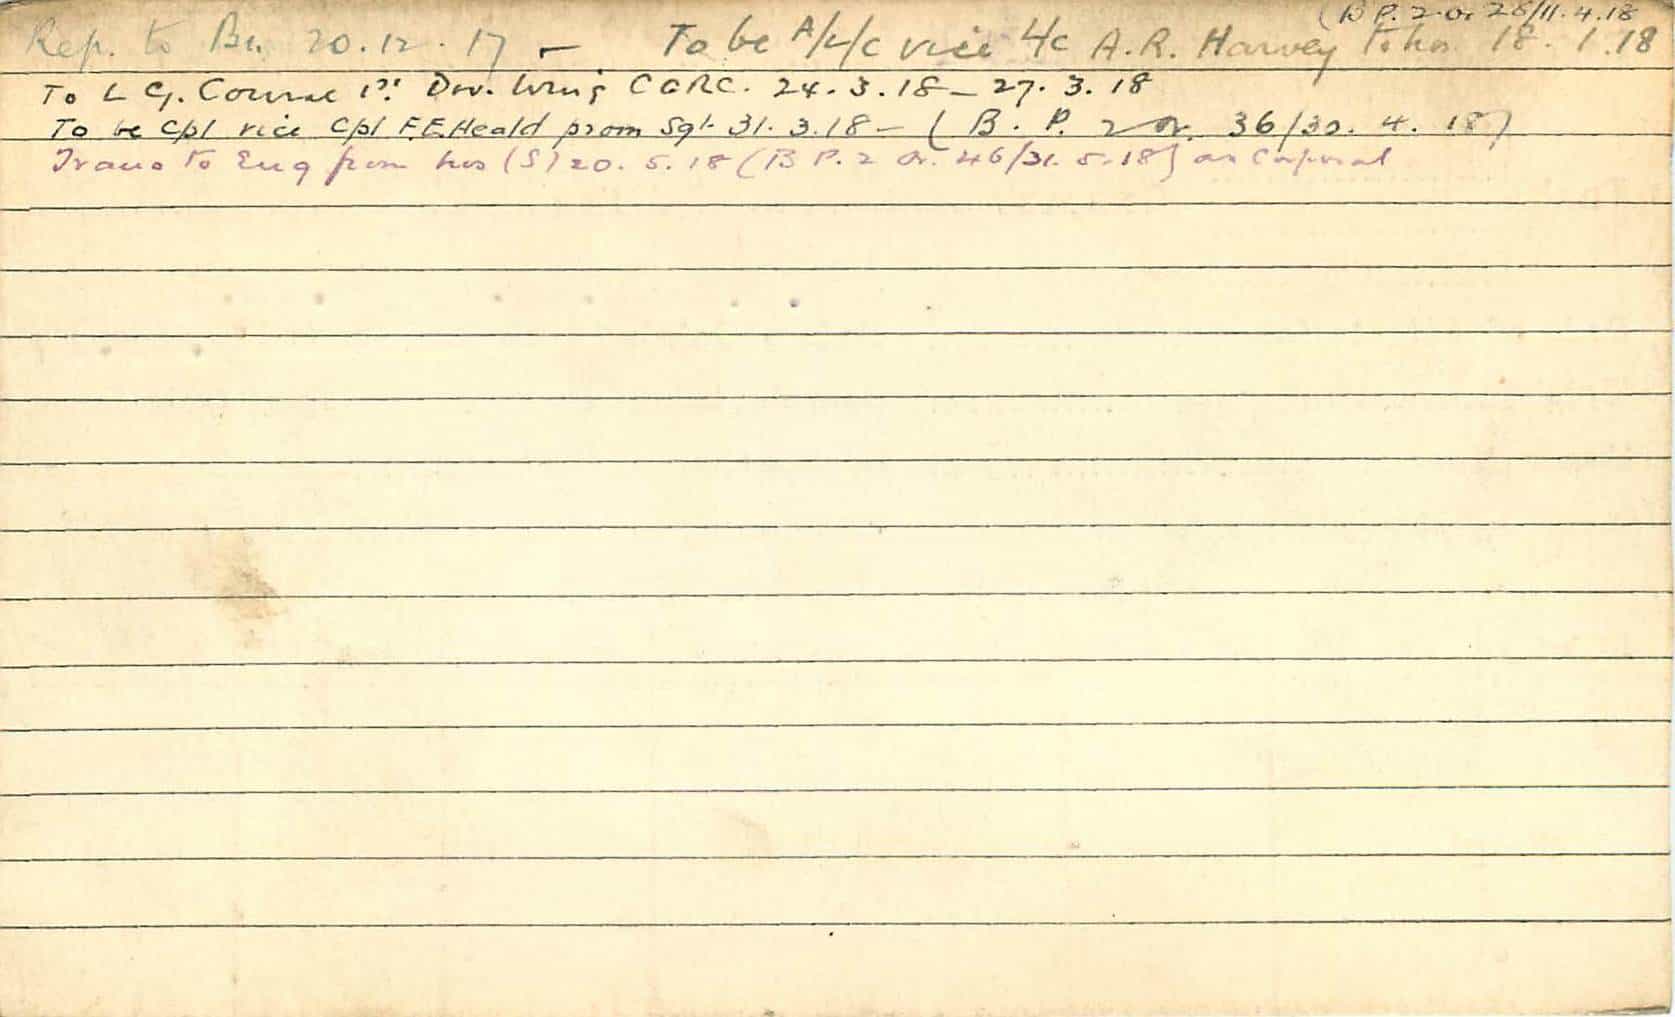 (B P. 2 Or 28/11.4.18
Rep. to Bn. 20.12.17 — To be A/L/C vice L/C A.R. Harvey to hos 18.1.18
To L G. Course 1st Div. Wing CCRC. 24.3.18 — 27.3.18
To be Cpl vice Cpl F.E. Heald prom Sgt 31.3.18 — (B.P. 2 Or. 36/30.4.18)
Trans to Eng from hos (S) 20.5.18 (B P. 2 Or. 46/31.5.18) as Corporal